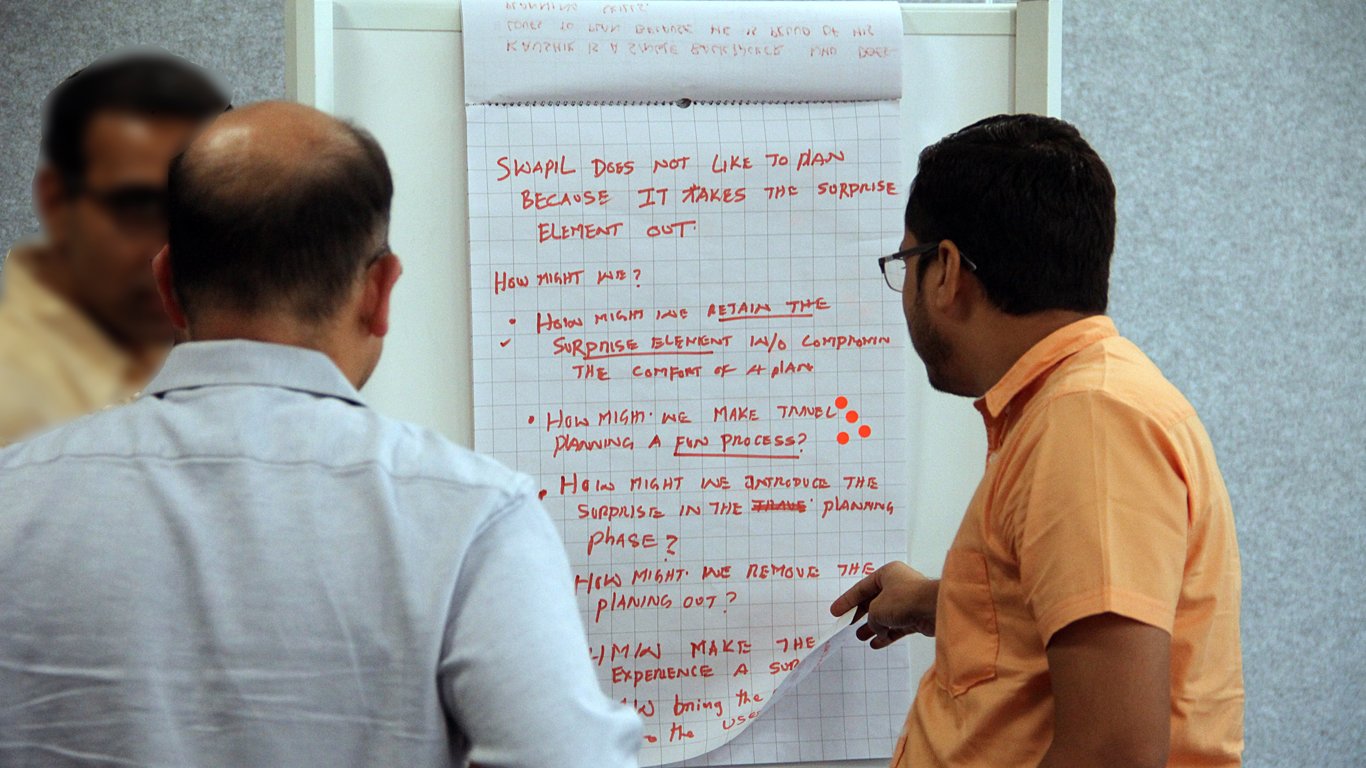 KAUSHIK IS A SINGLE BACKPACKER WHO DOES
LOVES TO PLAN BECAUSE HE IS PROUD OF HIS
PLANNING SKILLS.
SWAPIL DOES NOT LIKE TO PLAN
BECAUSE IT TAKES THE SURPRISE
ELEMENT OUT.
HOW MIGHT WE?
• HOW MIGHT WE RETAIN THE
✓ SURPRISE ELEMENT W/O COMPROMIN
THE COMFORT OF A PLAN
• HOW MIGHT WE MAKE TRAVEL
PLANNING A FUN PROCESS?
• HOW MIGHT WE INTRODUCE THE
SURPRISE IN THE PLANNING
PHASE?
HOW MIGHT WE REMOVE THE
PLANING OUT?
HMW MAKE THE
EXPERIENCE A SUR
bring the
the USE